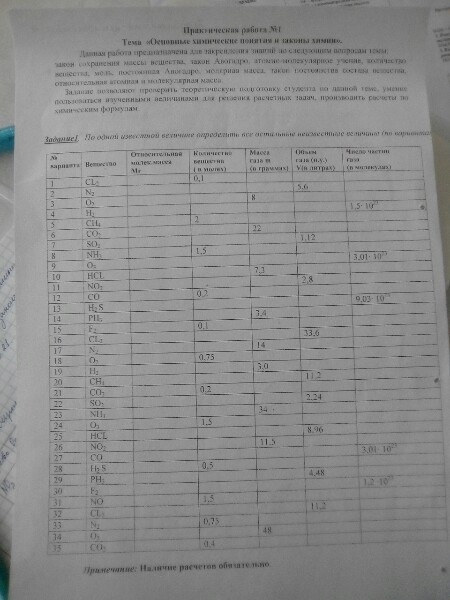 Практическая работа №1
Тема «Основные химические понятия и законы химии».
Данная работа предназначена для закрепления знаний по следующим вопросам темы:
закон сохранения массы вещества, закон Авогадро, атомно-молекулярное учение, количество
вещества, моль, постоянная Авогадро, молярная масса, закон постоянства состава вещества,
относительная атомная и молекулярная масса.
Задание позволяют проверить теоретическую подготовку студента по данной теме, умение
пользоваться изученными величинами для решения расчетных задач, производить расчеты по
химическим формулам
Задание1. По одной известной величине определить все остальные неизвестные величины (по вариантам)
№ варианта Вещество Относительная молек.масса Mr Количество вещества (в молях) Масса газа m (в граммах) Объем газа (н.у.) V(в литрах) Число частиц газа (в молекулах)
1 CL₂ 0,1
2 N₂ 5,6
3 O₂ 8
4 H₂ 1,5· 10²³
5 CH₄ 2
6 CO₂ 22
7 SO₂ 1,12
8 NH₃ 1,5
9 O₂ 3,01· 10²³
10 HCL 7,3
11 NO₂ 2,8
12 CO 0,2
13 H₂S 9,03· 10²³
14 PH₃ 3,4
15 F₂ 0,1
16 CL₂ 33,6
17 N₂ 14
18 O₂ 0,75
19 H₂ 3,0
20 CH₄ 11,2
21 CO₂ 0,2
22 SO₂ 2,24
23 NH₃ 34
24 O₂ 1,5
25 HCL 8,96
26 NO₂ 11,5
27 CO 3,01· 10²³
28 H₂S 0,5
29 PH₃ 4,48
30 F₂ 1,2· 10²³
31 NO 1,5
32 CL₂ 11,2
33 N₂ 0,75
34 O₂ 48
35 CO₂ 0,4
Примечание: Наличие расчетов обязательно.